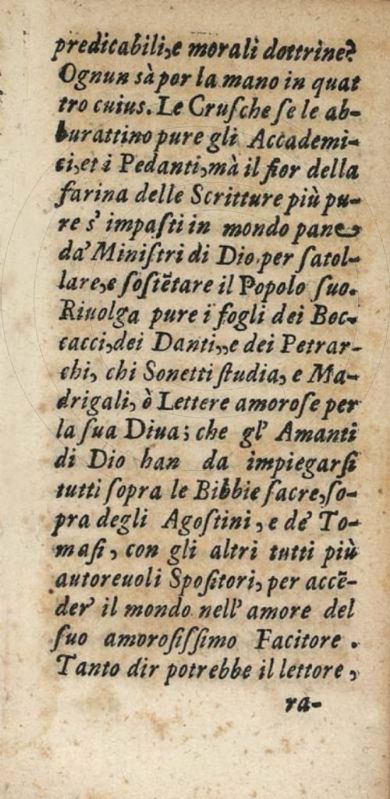 predicabili, e morali dottrine?
Ognun sà por la mano in quat
tro cuius. Le Cruſche ſe le ab-
burattino pure gli Accademi-
ci, et i Pedanti, mà il fior della
farina delle Scritture più pu-
re s' impaſti in mondo pane
da' Miniſtri di Dio per ſatol-
lare, e ſoſtẽtare il Popolo ſuo.
Riuolga pure i fogli dei Boc-
cacci, dei Danti, e dei Petrar-
chi, chi Sonetti ſtudia, e Ma-
drigali, ò Lettere amoroſe per
la ſua Diua; che gl' Amanti
di Dio han da impiegarſi
tutti ſopra le Bibbie ſacre, ſo-
pra degli Agoſtini, e de' To-
maſi, con gli altri tutti più
autoreuoli Spoſitori, per accẽ-
der' il mondo nell' amore del
ſuo amoroſiſſimo Facitore.
Tanto dir potrebbe il lettore,
ra-